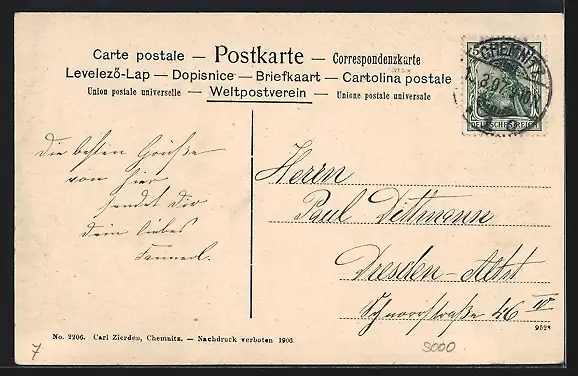 Carte postale — Postkarte — Correspondenzkarte
Levelező-Lap — Dopisnice — Briefkaart — Cartolina postale
Union postale universelle — Weltpostverein — Unione postale universale
CHEMNITZ
DEUTSCHES REICH
Die besten Grüße
von hier
sendet dir
dein liebes
Herrn
Paul Dittmann
Dresden-Altst
Schnorrstraße 46 IV
9528
No. 2206. Carl Zierden, Chemnitz. — Nachdruck verboten 1906.
7
5000